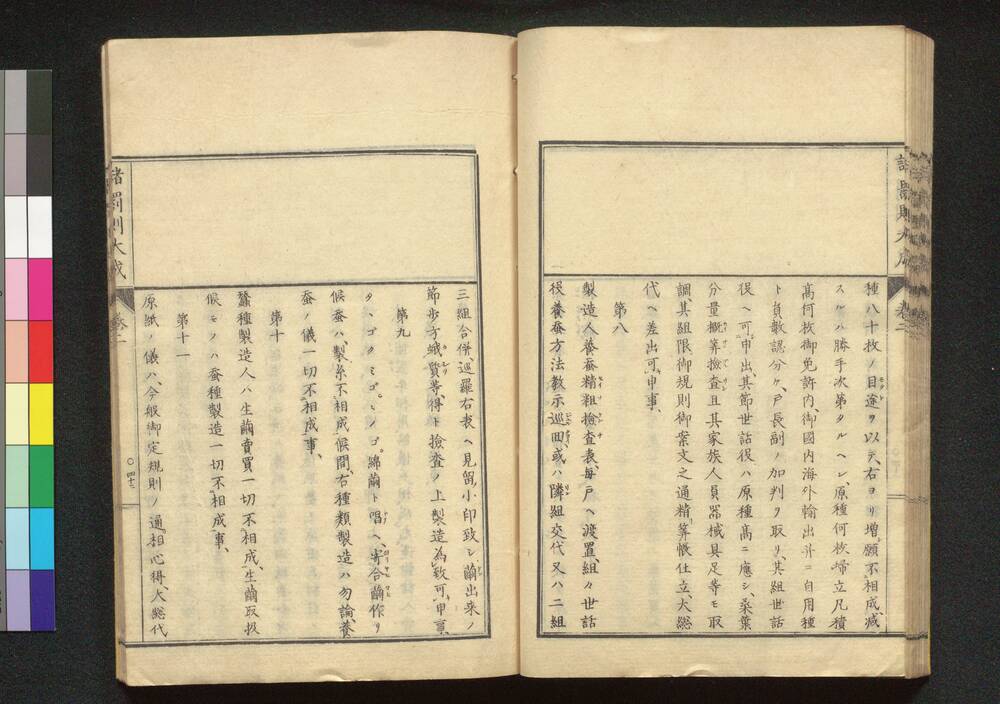 種八十枚ノ目途ヲ以テ、右ヨリ増願不相成、減
スルハ勝手次第タルヘシ、原種何枚掃立凡積
高何枚御免許内、御國内海外輸出并ニ自用種
ト員數認分ケ、戸長副ノ加判ヲ取リ、其組世話
役ヘ可申出、其節世話役ハ原種高ニ應シ、桑葉
分量概算檢査且其家族人員器械具足等モ取
調、其組限御規則御案文之通精算概仕立、大総
代ヘ差出可申事、
第八
製造人養蚕精粗檢査表、毎戸ヘ渡置、組々世話
役養蚕方法教示巡回、或ハ隣組交代又ハ二組
諸罰則大成
卷二
三組合併、巡羅右表ヘ見留小印致シ、繭出来ノ
節歩方蛾質等、得ト檢査ノ上製造為致可申事、
第九
候蚕ハ、製糸不相成候間、右種類製造ハ勿論、養
蚕ノ儀一切不相成事、
第十
蠶種製造人ハ生繭賣買一切不相成、生繭取扱
候モノハ蚕種製造一切不相成事、
第十一
原紙ノ儀ハ、今般御定規則ノ通相心得大総代
諸罰則大成
卷二
〇四十二